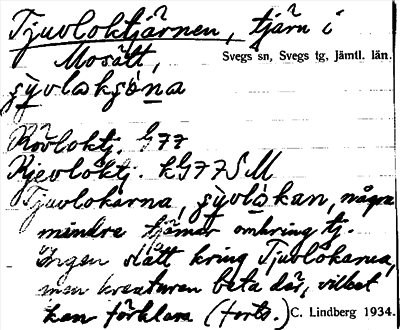 Tjuvloktjärnen, tjärn i
Mosätt,
Svegs sn, Svegs tg, Jämtl. län.
Rövloktj. G77
Kjevloktj. kG77SM
Tjuvlokarna, några
mindre tjärnar omkring tj.
Ingen slått kring Tjuvlokarna,
men kreaturen beta där, vilket
kan förklara (forts.)
C. Lindberg 1934.